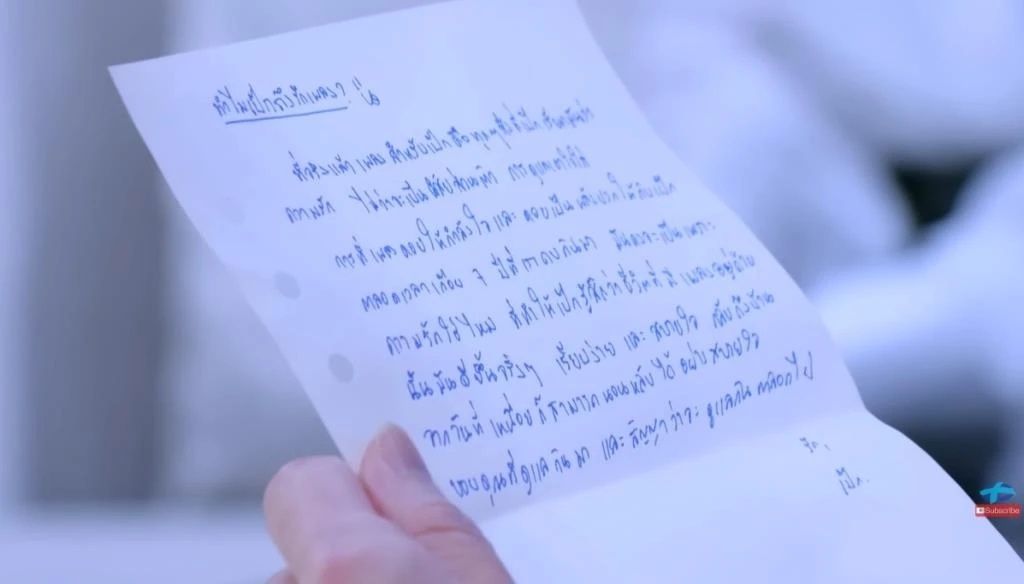 ทำไมเป๊กถึงรักเพลง?
ที่จริงแล้ว เพลง สำหรับเป๊ก คือ ทุกๆสิ่งที่เป๊ก
ความรัก ไม่ว่าจะเป็น การดูแลเอาใจใส่
การที่เพลงคอยให้กำลังใจ และ คอยเป็น ให้กับเป๊ก
ตลอดเวลาเกือบ 7 ปีที่เราคบกันมา มันคงจะเป็นเพราะ
ความรักใช่ไหม ที่ทำให้เป๊กรู้สึกว่าชีวิตที่มี เพลงอยู่ด้วย
นั้นมันดีขึ้นจริงๆ เรียบง่าย และ สบายใจ กลับถึงบ้าน
จากวันที่เหนื่อยก็สามารถนอนหลับได้ อย่างสบายใจ
ขอบคุณที่ดูแลกันมา และสัญญาว่าจะดูแลกันตลอดไป
รัก,
เป๊ก.
Subscribe